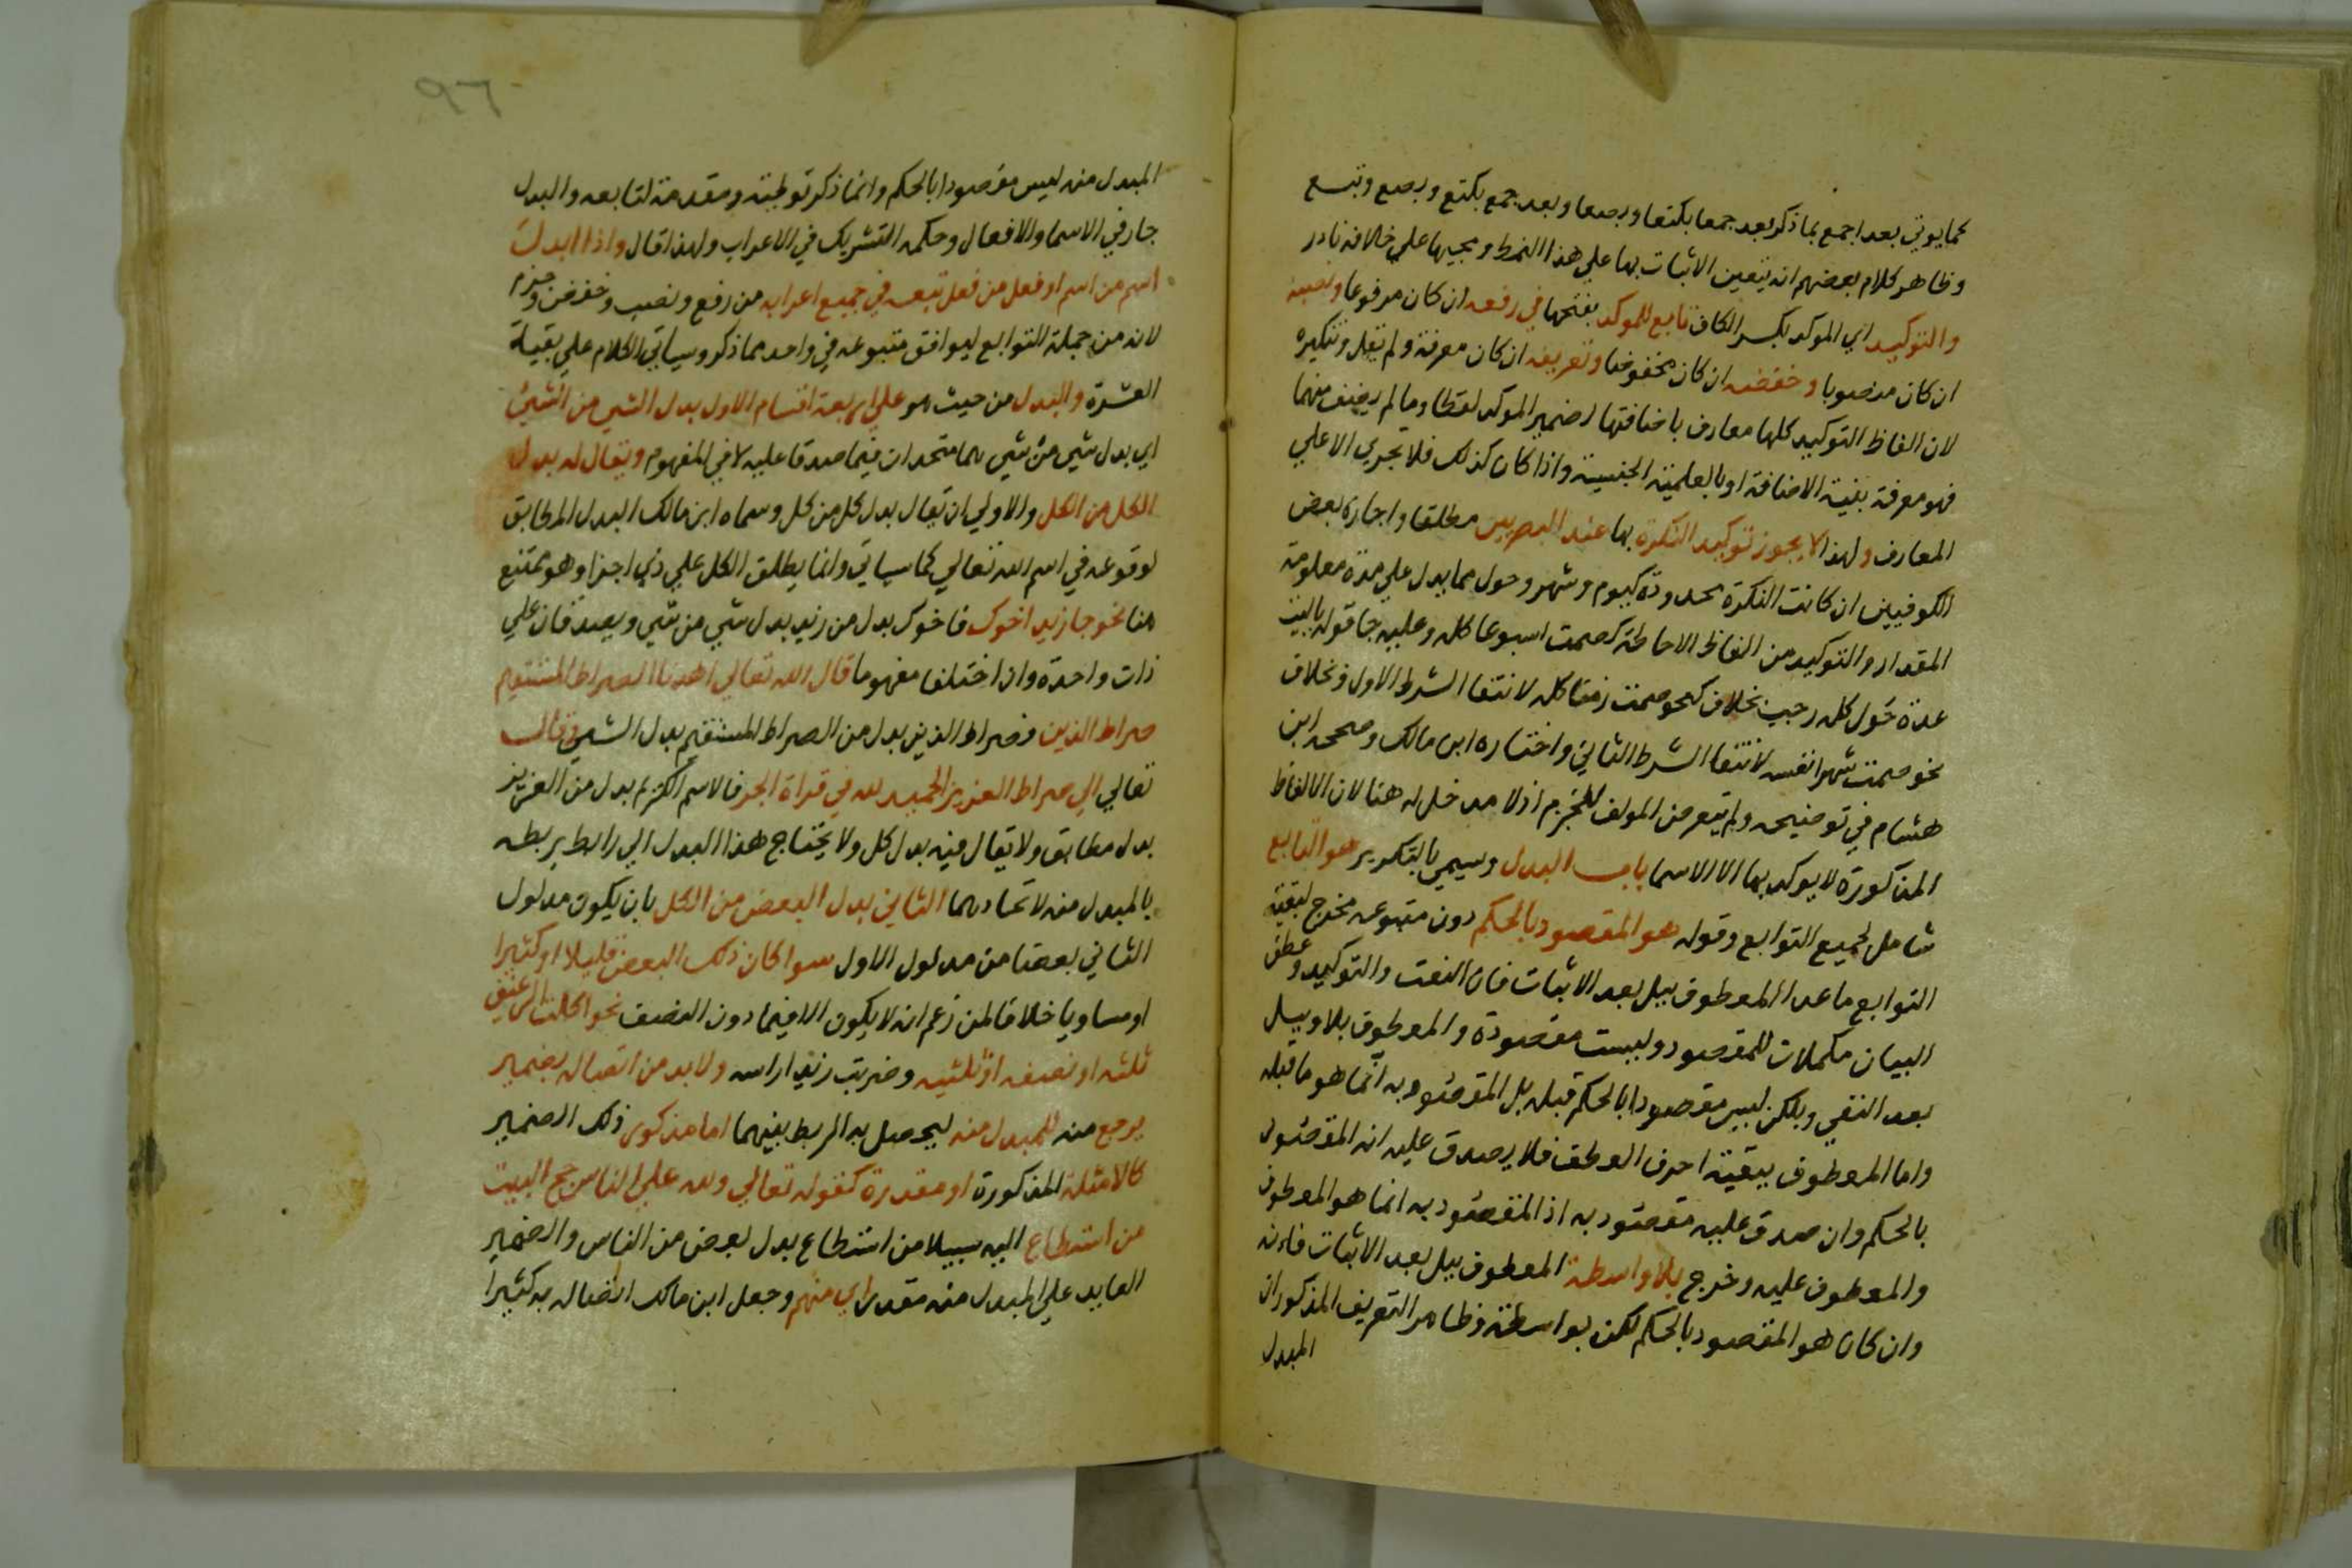 كما يوتي بعد اجمع بما ذكر بعد جمعا بكتعا وبصعا وبعد جمع بكتع وبصع وبتع
وظاهر كلام بعضهم انه يتعين الاتيان بها علي هذا النمط ومجيها علي خلافه نادر
والتوكيد اي الموكد بكسر الكاف تابع للموكد بفتحها في رفعه ان كان مرفوعا ونصبه
ان كان منصوبا وخفضه ان كان مخفوضا وتعريفه ان كان معرفة ولم يقل وتنكيره
لان الفاظ التوكيد كلها معارف باضافتها لضمير الموكد لفظا ومالم يضف منها
فهو معرفة بنية الاضافة او بالعلمية الجنسية واذا كان كذلك فلا يجري الا علي
المعارف ولهذا لا يجوز توكيد النكرة بها عند البصريين مطلقا واجازه بعض
الكوفيين ان كانت النكرة محدودة كيوم وشهر وحول مما يدل علي مدة معلومة
المقدار والتوكيد من الفاظ الاحاطة كصمت اسبوعا كله وعليه جا قوله ياليت
عدة حول كله رجب بخلاف نحو صمت زمنا كله لانتفا الشرط الاول وبخلاف
نحو صمت شهرا نفسه لانتفا الشرط الثاني واختاره ابن مالك وصححه ابن
هشام في توضيحه ولم يتعرض المولف للجزم اذ لا مدخل له هنا لان الالفاظ
المذكورة لا يوكد بها الا الاسما باب البدل وسيمي بالتكرير هو التابع
شامل لجميع التوابع وقوله هو المقصود بالحكم دون متبوعه مخرج لبقية
التوابع ما عدا المعطوف ببل بعد الاثبات فان النعت والتوكيد وعطف
البيان مكملات للمقصود وليست مقصودة والمعطوف بلا وببل
بعد النفي وبلكن ليس مقصودا بالحكم قبله بل المقصود به انما هو ما قبله
واما المعطوف ببقية احرف العطف فلا يصدق عليه انه المقصود
بالحكم وان صدق عليه مقصود به اذ المقصود به انما هو المعطوف
والمعطوف عليه وخرج بلا واسطة المعطوف ببل بعد الاثبات فانه
وان كان هو المقصود بالحكم لكن بواسطة فظاهر التعريف المذكور ان
المبدل
٩٦
المبدل منه ليس مقصودا بالحكم وانما ذكر توطية ومقدمة لتابعه والبدل
جار في الاسما والافعال وحكمه التشريك في الاعراب ولهذا قال واذا ابدلت
اسم من اسم او فعل من فعل تبعه في جميع اعرابه من رفع ونصب وخفض وجزم
لانه من جملة التوابع ليوافق متبوعه في واحد مما ذكر وسياتي الكلام علي بقية
العشرة والبدل من حيث هو علي اربعة اقسام الاول بدل الشي من الشي
اي بدل شي من شي هما متحدان فيما صدقا عليه لا في المفهوم ويقال له بدل
الكل من الكل والاولي ان يقال بدل كل من كل وسماه ابن مالك البدل المطابق
لوقوعه في اسم الله تعالي كما سياتي وانما يطلق الكل علي ذي اجزا وهو ممتنع
هنا نحو جا زيد اخوك فاخوك بدل من زيد بدل شي من شي ويصدقان علي
ذات واحدة وان اختلفا مفهوما قال الله تعالي اهدنا الصراط المستقيم
صراط الذين فصراط الذين بدل من الصراط المستقيم بدل الشي وقال
تعالي الي صراط العزيز الحميد لله في قراة الجر فالاسم الكريم بدل من العزيز
بدل مطابق ولا يقال فيه بدل كل ولا يحتاج هذا البدل الي رابط يربطه
بالمبدل منه لاتحادهما الثاني بدل البعض من الكل بان يكون مدلول
الثاني بعضا من مدلول الاول سوا كان ذلك البعض قليلا او كثيرا
او مساويا خلافا لمن زعم انه لا يكون الا فيما دون النصف نحو اكلت الرغيف
ثلثه او نصفه او ثلثيه وضربت زيدا راسه ولا بد من اتصاله بضمير
يرجع منه للمبدل منه ليحصل به الربط بينهما اما مذكور ذلك الضمير
كالامثلة المذكورة او مقدرة كقوله تعالي ولله علي الناس حج البيت
من استطاع اليه سبيلا من استطاع بدل بعض من الناس والضمير
العايد علي المبدل منه مقدر اي منهم وجعل ابن مالك اتصاله به كثيرا